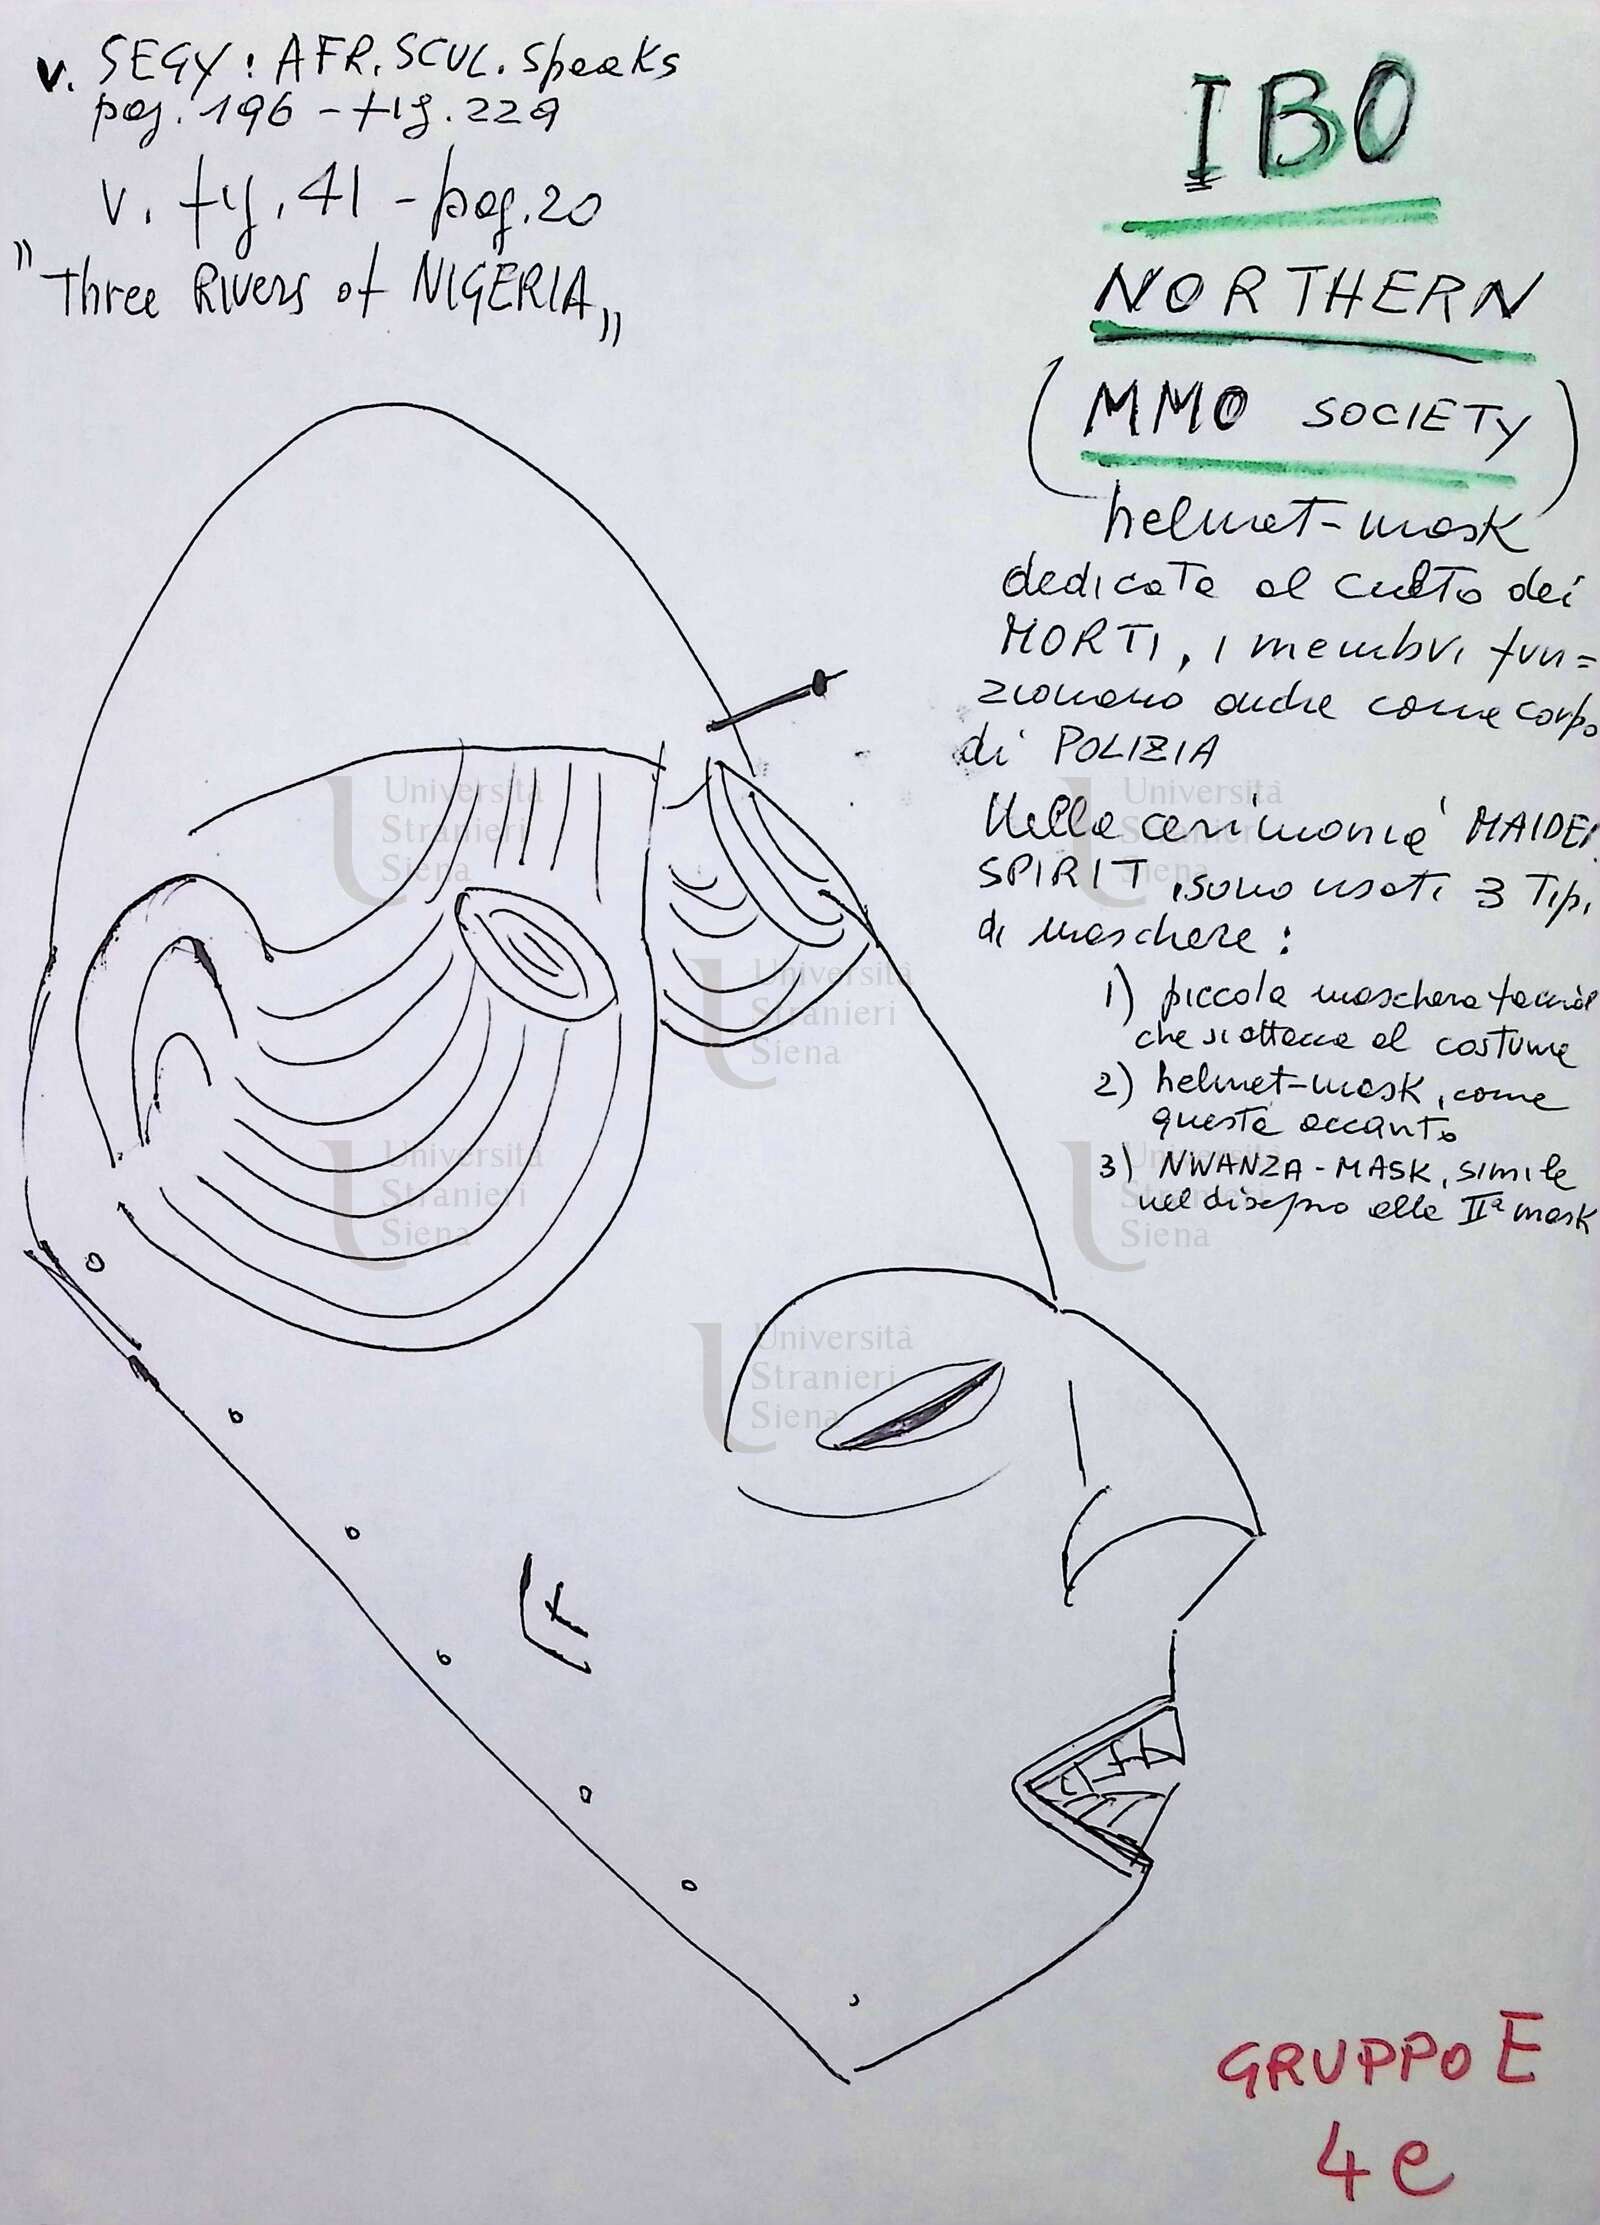 v. SEGY: AFR. SCUL. Speaks
pag. 196 - fig. 229
v. fig. 41 - pag. 20
"Three RIVERS of NIGERIA"
IBO
NORTHERN
(MMO SOCIETY)
helmet-mask
dedicata al culto dei
MORTI, i membri fun=
zionano anche come corpo
di POLIZIA
Nella cerimonia MAIDEN
SPIRIT, sono usati 3 Tipi
di maschere:
1) piccola maschera facciale
che si attacca al costume
2) helmet-mask, come
questa accanto
3) NWANZA-MASK, simile
nel disegno alla IIª mask
Università
Stranieri
Siena
Università
Stranieri
Siena
Università
Stranieri
Siena
Università
Stranieri
Siena
Università
Stranieri
Siena
Università
Stranieri
Siena
GRUPPO E
4e